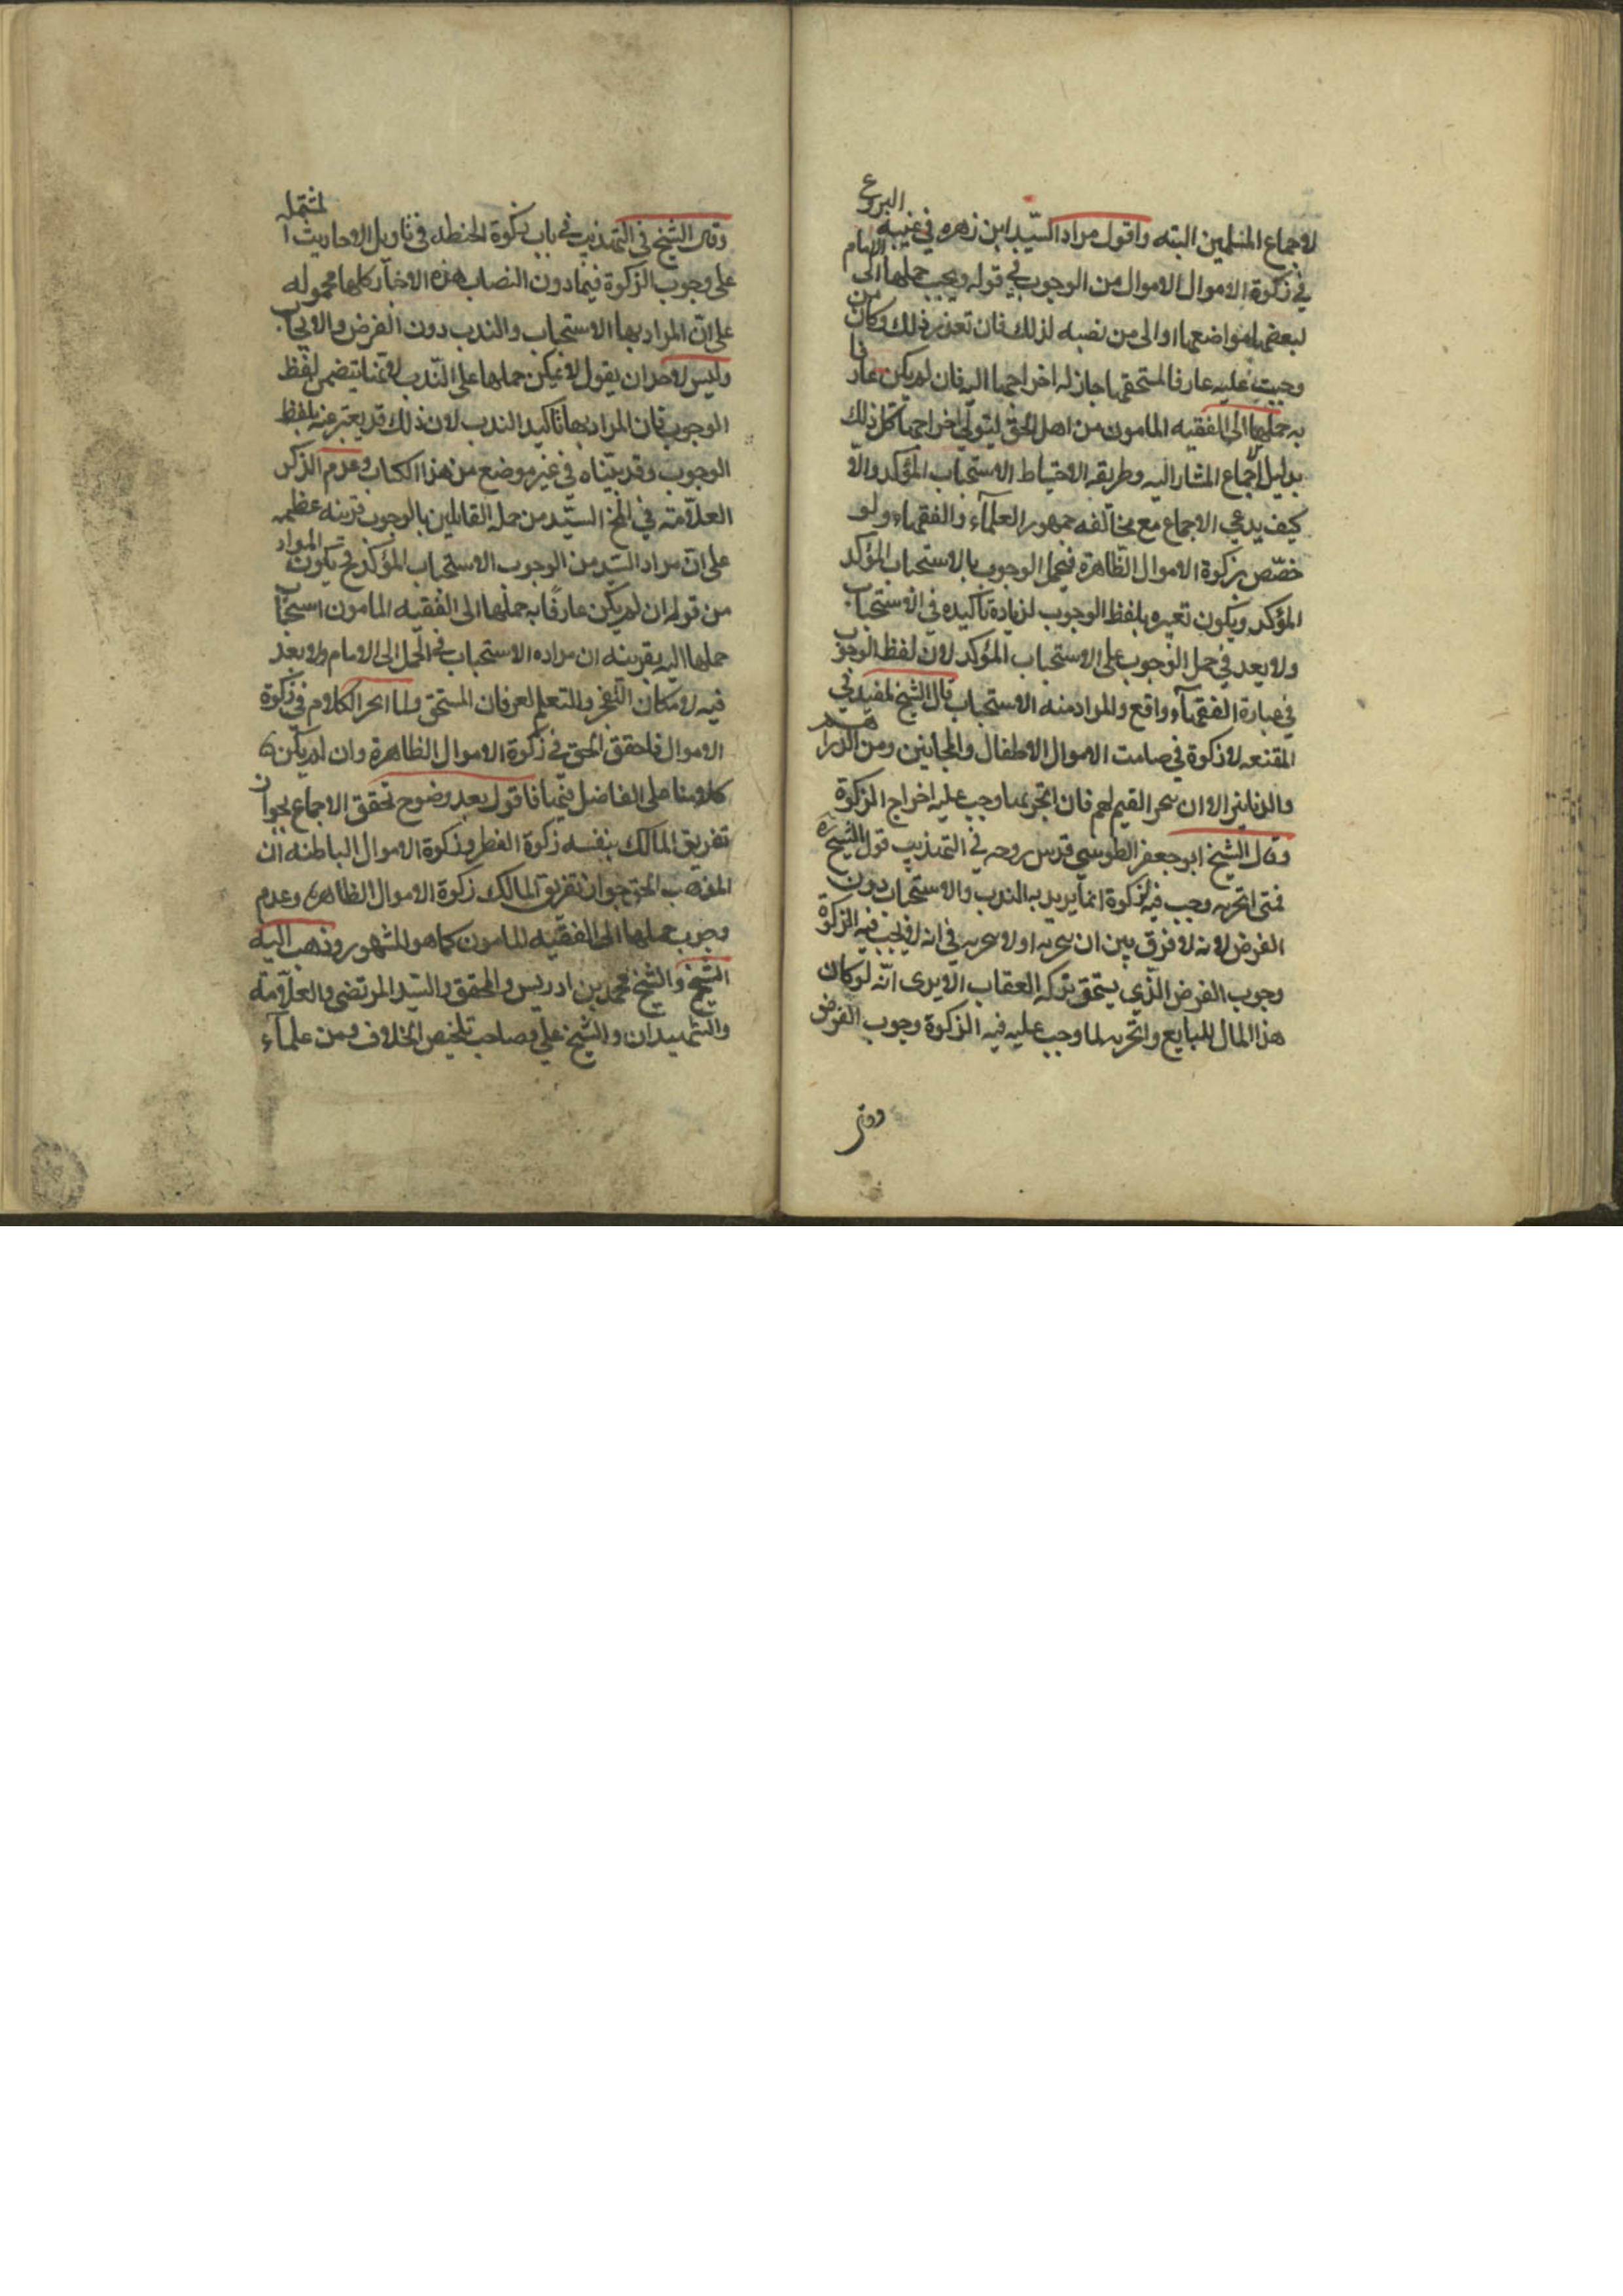 لاجماع المسلمين البته واقول مراد السيّد ابن زهره في غنيه النزوع
في زكوة الاموال الاموال من الوجوب في قوله ويجب حملها الى الامام
ليضعها مواضعها او الى من نصبه لذلك فان تعذر ذلك وكان من
وجبت عليه عارفا لمستحقها جاز له اخراجها اليه فان لم يكن عارفا
به حملها الى الفقيه المامون من اهل الحق ليتولى اخراجها كل ذلك
بدليل الاجماع المشار اليه وطريقه الاحتياط الاستحباب المؤكد والا
كيف يدعي الاجماع مع مخالفه جمهور العلمآء والفقهاء ولو
خصّص بزكوة الاموال الظاهرة فيحمل الوجوب بالاستحباب المؤكد
المؤكد ويكون تعبيره بلفظ الوجوب لزيادة تأكيده في الاستحباب
ولا بعد في حمل الوجوب على الاستحباب المؤكد لان لفظ الوجوب
في عبارة الفقهآء واقع والمراد منه الاستحباب قال الشيخ المفيد في
المقنعه لا زكوة في صامت الاموال الاطفال والمجانين ومن الدراهم
والدنانير الا ان يتجر القيم لهم فان اتجر بها وجب عليه اخراج الزكوة
وقال الشيخ ابو جعفر الطوسي قدس روحه في التهذيب قول الشيخ ره
فمتى اتجر به وجب فيه الزكوة انما يريد به الندب والاستحباب دون
الفرض لانه لا فرق بين ان يتجر به او لا يتجر به في انه لا يجب فيه الزكوة
وجوب الفرض الذي يستحق بتركه العقاب الا يرى انّه لو كان
هذا المال للبايع واتجر به لما وجب عليه فيه الزكوة وجوب الفرض
وقال
وقال الشيخ في التهذيب في باب زكوة الحنطه في تاويل الاحاديث المشتمله
على وجوب الزكوة فيما دون النصاب هذه الاخبار كلها محموله
على انّ المراد بها الاستحباب والندب دون الفرض والايجاب
وليس لاحد ان يقول لا يمكن حملها على النّدب لانها يتضمن لفظ
الوجوب فان المراد بها تاكيد الندب لان ذلك قد يعبّر عنه بلفظ
الوجوب وقد بيّناه في غير موضع من هذا الكتاب وعدم الذكر
العلاّمة في المخ السيّد من جمله القايلين بالوجوب قرينه عظيمه
على انّ مراد السيّد من الوجوب الاستحباب المؤكد فح يكون المراد
من قوله ان لم يكن عارفًا به حملها الى الفقيه المامون استحباب
حملها اليه بقرينه ان مراده الاستحباب في الحمل الى الامام ولا بعد
فيه لامكان التفحّر والتعلم لعرفان المستحق ولما انجر الكلام في زكوة
الاموال فلنحقق الحق في زكوة الاموال الظاهرة وان لم يكن
كلامنا على الفاضل فيها فاقول بعد وضوح تحقق الاجماع بجواز
تفريق المالك بنفسه زكوة الفطر وزكوة الاموال الباطنه ان
المذهب الحق جواز تفريق المالك زكوة الاموال الظاهره وعدم
وجوب حملها الى الفقيه المامون كما هو المشهور وذهب اليه
الشيخ والشيخ محمد بن ادريس والمحقق والسيّد المرتضى والعلاّمة
والشهيدان والشيخ علي وصاحب تلخيص الخلاف ومن علمآء